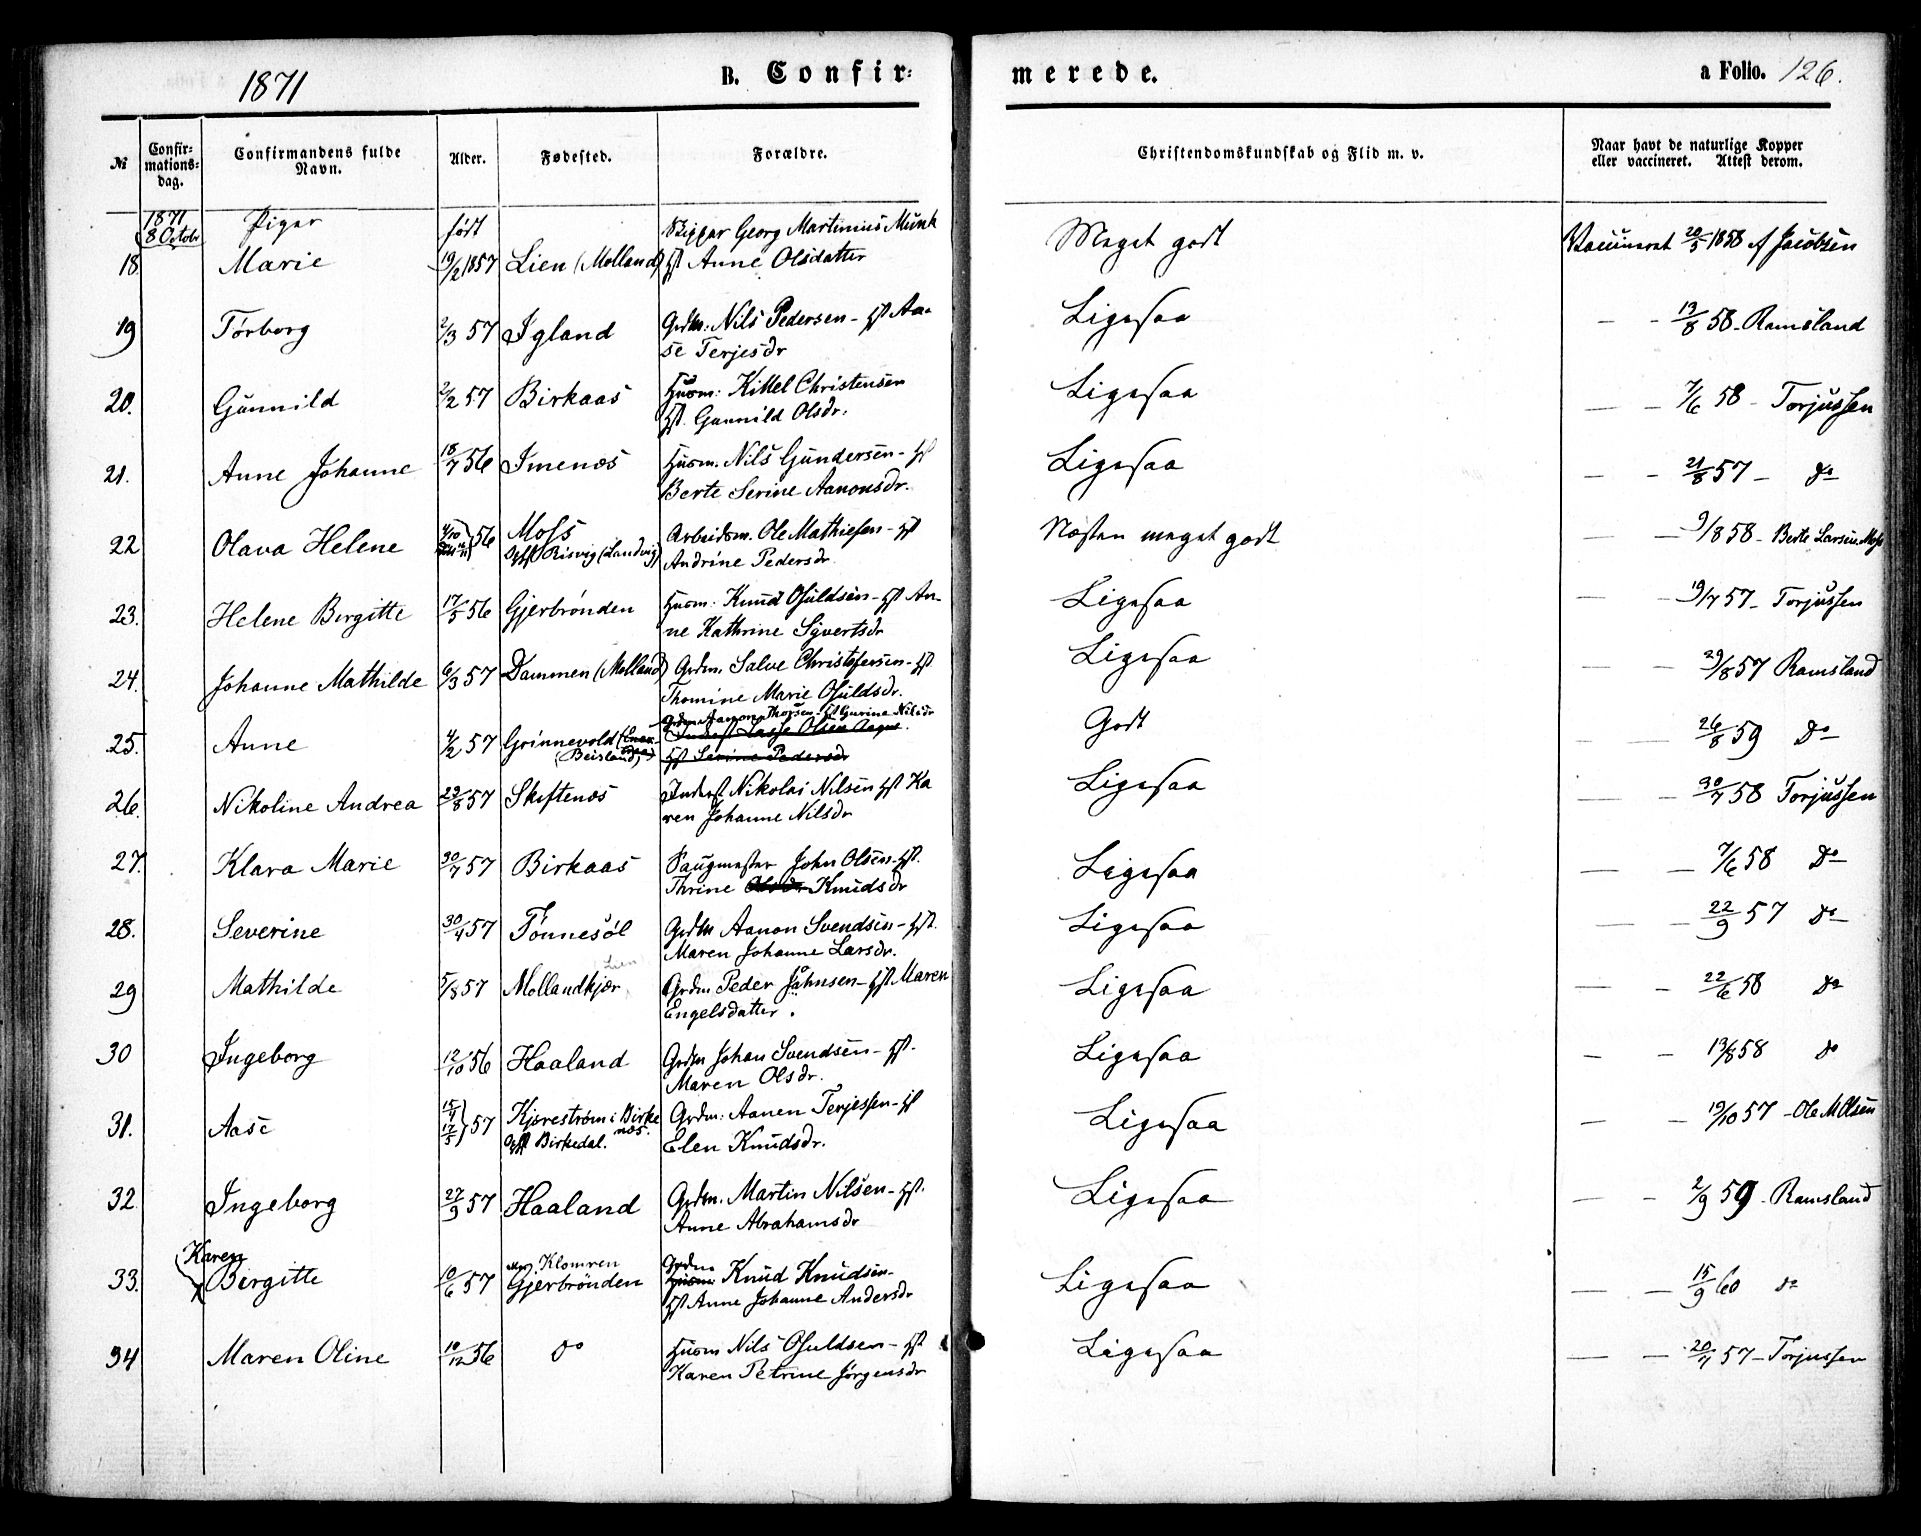 1871 B. Confir= merede. a Folio. 126.
№ Confir=mations=dag. Confirmandens fulde Navn. Alder. Fødested. Forældre. Christendomskundskab og Flid m. v. Naar havt de naturlige Kopper eller vaccineret. Attest derom.
1871 8 Octobr Piger født Skipper Georg Martinius Munk Meget godt Vaccineret 20/5 1858 af Jacobsen
18 Marie 19/2 1857 Lien (Molland) Hst Anne Olsdatter
19 Torborg 2/3 57 Igland Grdm: Nils Pedersen - Hst Aa= Ligesaa — - 13/8 58 - Ramsland
se Terjesdr
20. Gunnild 2/2 57 Birkaas Husm: Kittel Christensen Ligesaa — — 7/6 58 - Torjussen
Hst. Gunnild Olsdr.
21. Anne Johanne 18/7 56 Imenæs Husm. Nils Gundersen - Hst Ligesaa — - 21/8 57 - do
Berte Serine Aanonsdr.
22 Olava Helene 4/10 56 Moss Arbeidsm. Ole Mathiesen - Hst Næsten meget godt — — 9/8 58 - Berte Larsen Moss
Opf Risvig (Landvig) Andrine Pedersdr
23. Helene Birgitte 17/5 56 Gjerbrønden Husm: Knud Osuldsen - Hst An- Ligesaa — — 19/7 57 - Torjussen
ne Kathrine Syvertsdr
24. Johanne Mathilde 6/3 57 Dammen (Molland) Grdm. Salve Christofersen - Hst Ligesaa — — 29/8 57 Ramsland
Thomine Marie Osuldsdr.
Grdm Aanon Thorsen - Hst Gurina Nilsdr
25. Anne 4/2 57 Grinnevold Inderst Lasse Olsen Godt - — 26/8 59 Do
(Beisland) Hst Serine Pedersdr
26. Nikoline Andrea 29/8 57 Skiftenæs Inderst Nikolai Nilsen Hst Ka Ligesaa — — 30/7 58 Torjussen
ren Johanne Nilsdr
27. Klara Marie 30/7 57 Birkaas Saugmester John Olsen - Hst. Ligesaa — — 7/6 58 Do
Thrine Olsdr Knudsdr
28. Severine 30/4 57 Tønnesøl Grdm Aanon Svendsen - Hst. Ligesaa — — 22/9 57 do
Maren Johanne Larsdr.
Lien
29 Mathilde 5/8 57 Mollandkjær Grdm Peder Jåhnsen - Hst Maren Ligesaa — - 22/6 58 do
Engelsdatter.
30 Ingeborg 12/10 56 Haaland Grdm Johan Svendsen - Hst. Ligesaa - - 13/8 58 do
Maren Olsdr.
31. Aase 15/4 12/5 57 Kjørestrøm i Birkenæs. Grdm: Aanen Terjessen - Hst Ligesaa — - 19/10 57 - Ole M Olsen
Opf Birkedal. Elen Knudsdr.
32. Ingeborg 27/9 57 Haaland Grdm. Martin Nilsen - Hst. Ligesaa — - 2/9 59 - Ramsland
Anne Abrahamsdr
Karen Klomren Grdm
33. Birgitte 10/6 57 Gjerbrønden Husm: Knud Knudsen - Ligesaa — — 15/9 60 do
Hst Anne Johanne Andersdr
34 Maren Oline 10/12 56 do Husm Nils Osuldsen - Hst Ligesaa — — 20/7 57 - Torjussen
Karen Petrine Jørgensdr